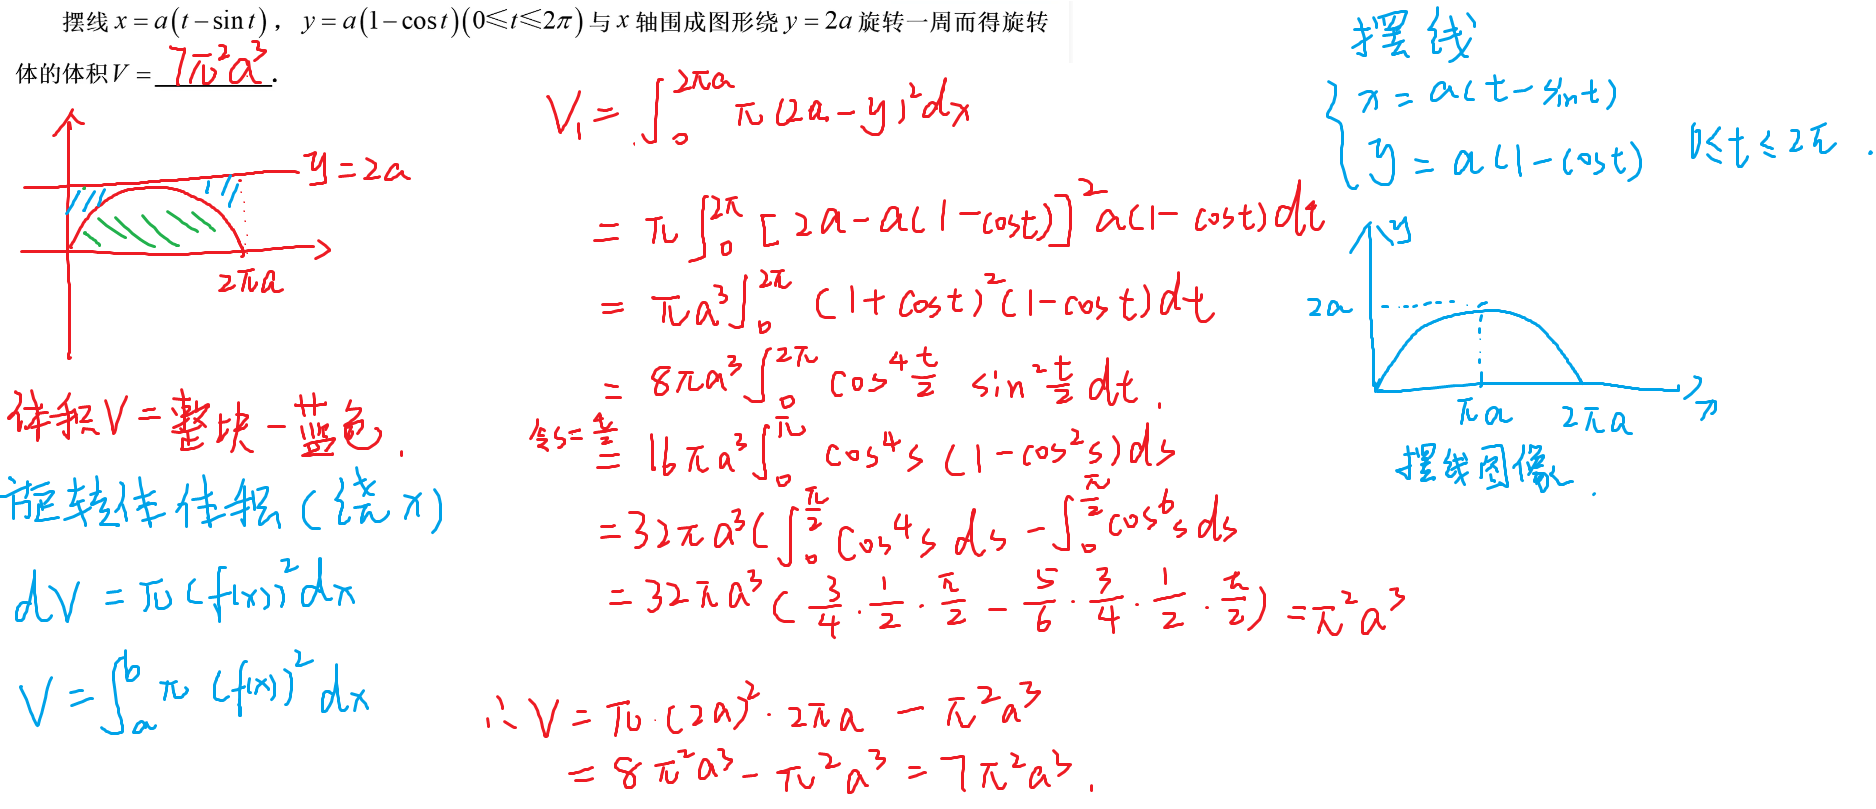 摆线 x = a(t − sin t)，y = a(1 − cos t)(0≤t≤2π)与 x 轴围成图形绕 y = 2a 旋转一周而得旋转
体的体积V = 7π²a³.
y = 2a
2πa
体积V = 整块 − 蓝色.
旋转体体积 (绕x)
dV = π(f(x))²dx
V = ∫_a^b π(f(x))²dx
V₁ = ∫_0^{2πa} π(2a − y)²dx
= π∫_0^{2π} [2a − a(1 − cost)]² a(1 − cost)dt
= πa³∫_0^{2π} (1 + cost)²(1 − cost)dt
= 8πa³∫_0^{2π} cos⁴ t/2 sin² t/2 dt.
令s = t/2 = 16πa³∫_0^π cos⁴s (1 − cos²s)ds
= 32πa³(∫_0^{π/2} cos⁴s ds − ∫_0^{π/2} cos⁶s ds
= 32πa³(3/4 · 1/2 · π/2 − 5/6 · 3/4 · 1/2 · π/2) = π²a³
∴ V = π·(2a)²·2πa − π²a³
= 8π²a³ − π²a³ = 7π²a³.
摆线
{ x = a(t − sint)
y = a(1 − cost) 0≤t≤2π.
y
2a
πa 2πa x
摆线图像.